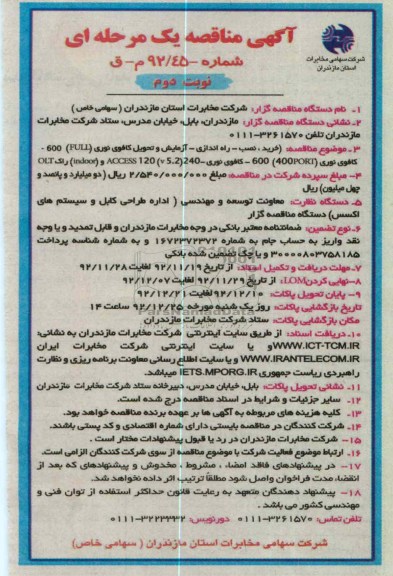 آگهی مناقصه یک مرحله ای
شماره -۹۲/۴۵ م- ق
نوبت دوم
شرکت سهامی مخابرات
استان مازندران
۱- نام دستگاه مناقصه گزار: شرکت مخابرات استان مازندران ( سهامی خاص )
۲- نشانی دستگاه مناقصه گزار: مازندران، بابل، خیابان مدرس، ستاد شرکت مخابرات
مازندران تلفن ۳۲۶۱۵۷۰-۰۱۱۱
۳- موضوع مناقصه: (خرید ، نصب – راه اندازی – آزمایش و تحویل کافوی نوری (FULL) 600 -
کافوی نوری (400PORT) 600 – کافوی نوری -240(v 5.2) ACCESS 120 و (indoor) راک OLT
۴- مبلغ سپرده شرکت در مناقصه: مبلغ ۲/۵۴۰/۰۰۰/۰۰۰ ریال ( دو میلیارد و پانصد و
چهل میلیون) ریال
۵- دستگاه نظارت: معاونت توسعه و مهندسی ( اداره طراحی کابل و سیستم های
اکسس) دستگاه مناقصه گزار
۶- نوع تضمین: ضمانتنامه معتبر بانکی در وجه مخابرات مازندران و قابل تمدید و یا وجه
نقد واریز به حساب جام به شماره ۱۶۷۲۳۷۲۳۷۲ و به شماره شناسه پرداخت
۳۰۰۰۰۸۰۳۷۵۸۱۸۵ و یا چک تضمین شده بانکی
۷- مهلت دریافت و تکمیل اسناد: از تاریخ ۹۲/۱۱/۱۹ لغایت ۹۲/۱۱/۲۸
۸- نهایی کردن LOM: از تاریخ ۹۲/۱۱/۲۹ لغایت ۹۲/۱۲/۰۷
۹- پایان تحویل پاکات: ۹۲/۱۲/۱۰ لغایت ۹۲/۱۲/۲۱
تاریخ بازگشایی پاکات: روز یک شنبه مورخه ۹۲/۱۲/۲۵ ساعت ۱۴
مکان بازگشایی پاکات: ستاد شرکت مخابرات مازندران
۱۰- دریافت اسناد: از طریق سایت اینترنتی شرکت مخابرات مازندران به نشانی:
WWW.ICT-TCM.IR و یا سایت اینترنتی شرکت مخابرات ایران
WWW.IRANTELECOM.IR و یا سایت اطلاع رسانی معاونت برنامه ریزی و نظارت
راهبردی ریاست جمهوری IETS.MPORG.IR میباشد.
۱۱- نشانی تحویل پاکات: بابل، خیابان مدرس، دبیرخانه ستاد شرکت مخابرات مازندران
۱۲- سایر جزئیات و شرایط در اسناد مناقصه درج شده است.
۱۳- کلیه هزینه های مربوطه به آگهی ها بر عهده برنده مناقصه خواهد بود.
۱۴- شرکت کنندگان در مناقصه بایستی دارای شماره اقتصادی و کد پستی باشند.
۱۵- شرکت مخابرات مازندران در رد یا قبول پیشنهادات مختار است .
۱۶- ارتباط موضوع فعالیت شرکت با موضوع مناقصه از سوی شرکت کنندگان الزامی است.
۱۷- در پیشنهادهای فاقد امضاء ، مشروط ، مخدوش و پیشنهادهای که بعد از
انقضاء مدت فراخوان واصل شود مطلقاً ترتیب اثر داده نخواهد شد.
۱۸- پیشنهاد دهندگان متعهد به رعایت قانون حداکثر استفاده از توان فنی و
مهندسی کشور می باشد .
تلفن تماس: ۳۲۶۱۵۷۰-۰۱۱۱ دورنویس: ۳۲۲۳۳۳۲-۰۱۱۱
شرکت سهامی مخابرات استان مازندران ( سهامی خاص)